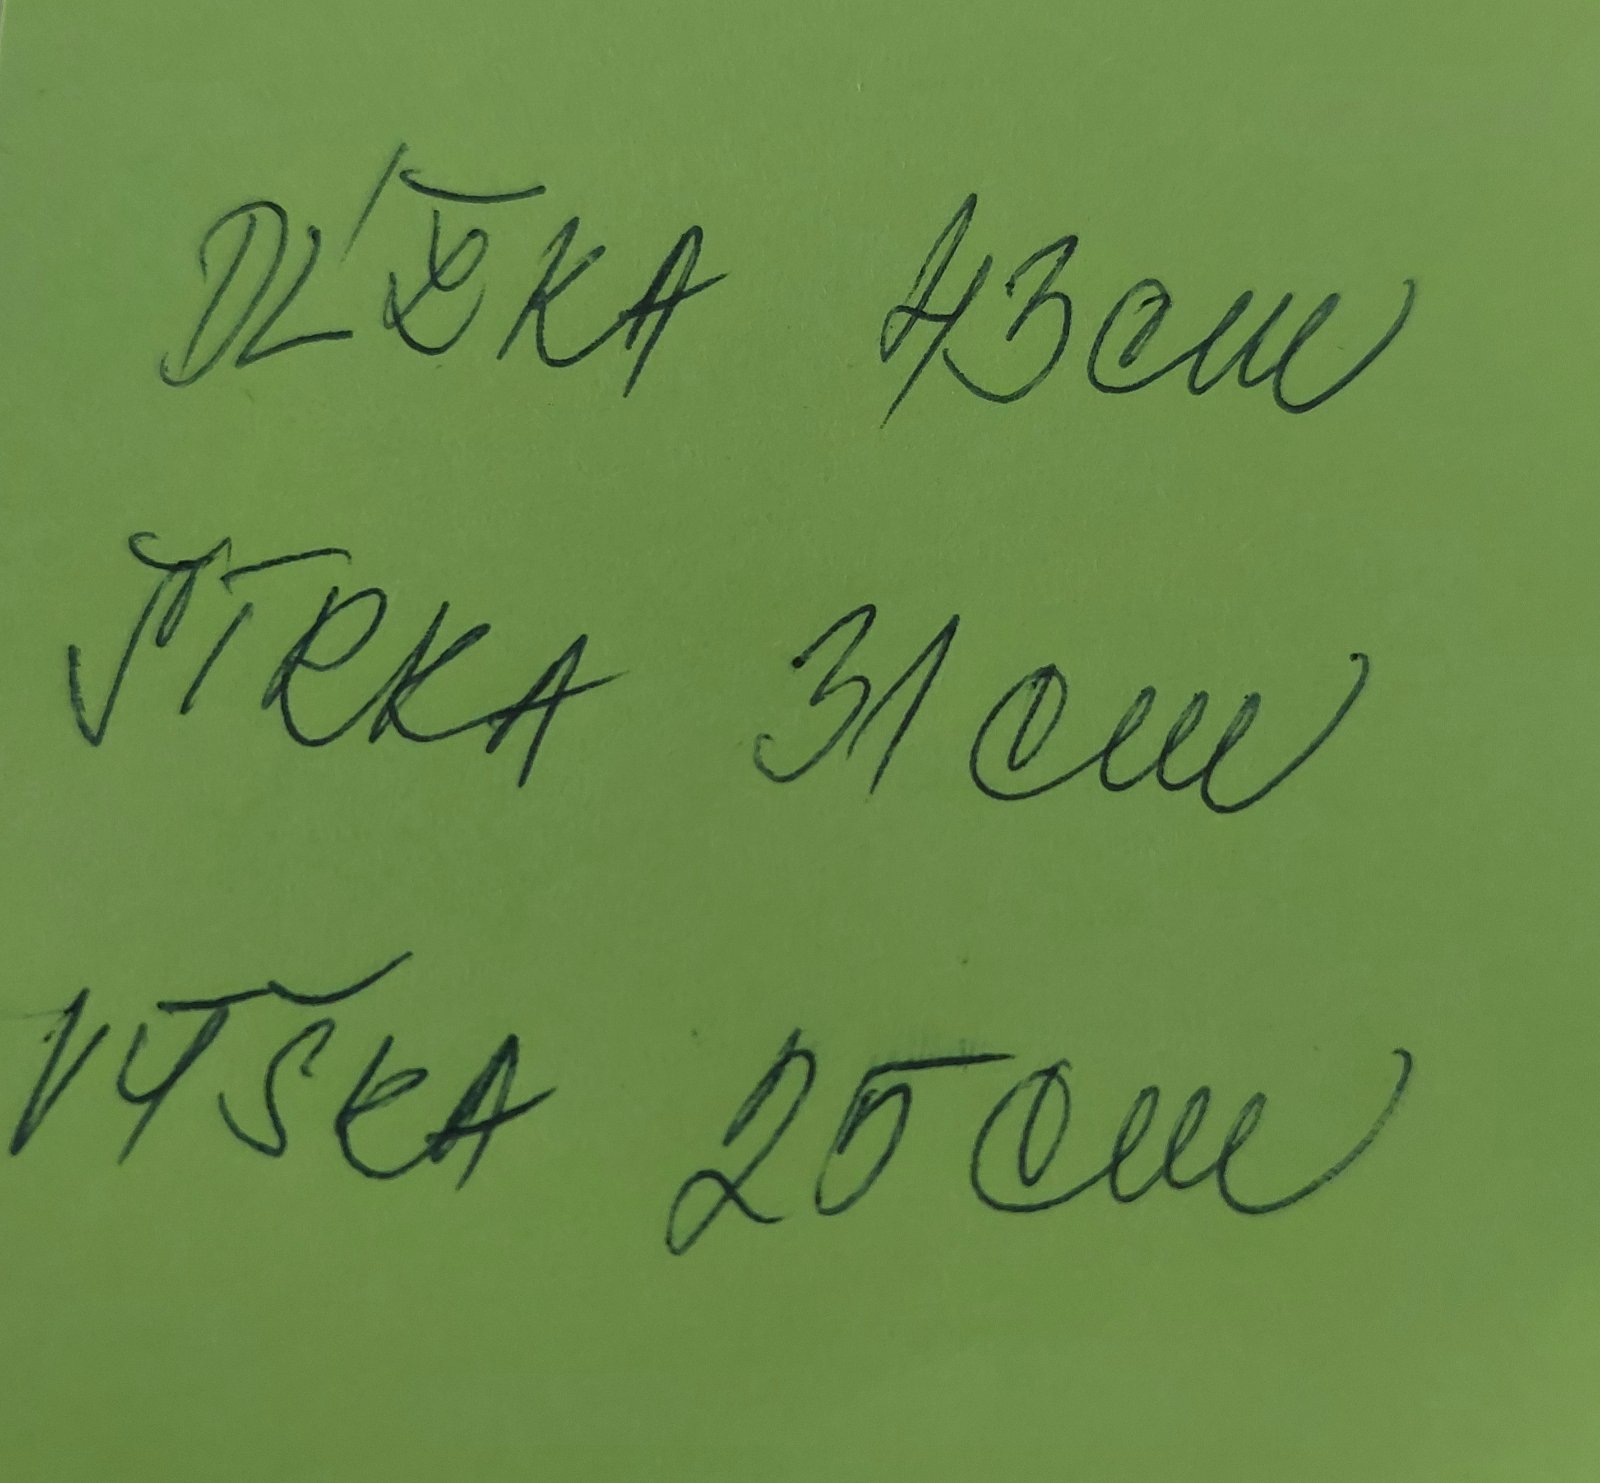 DĹŽKA 43cm
ŠÍRKA 31cm
VÝŠKA 25cm